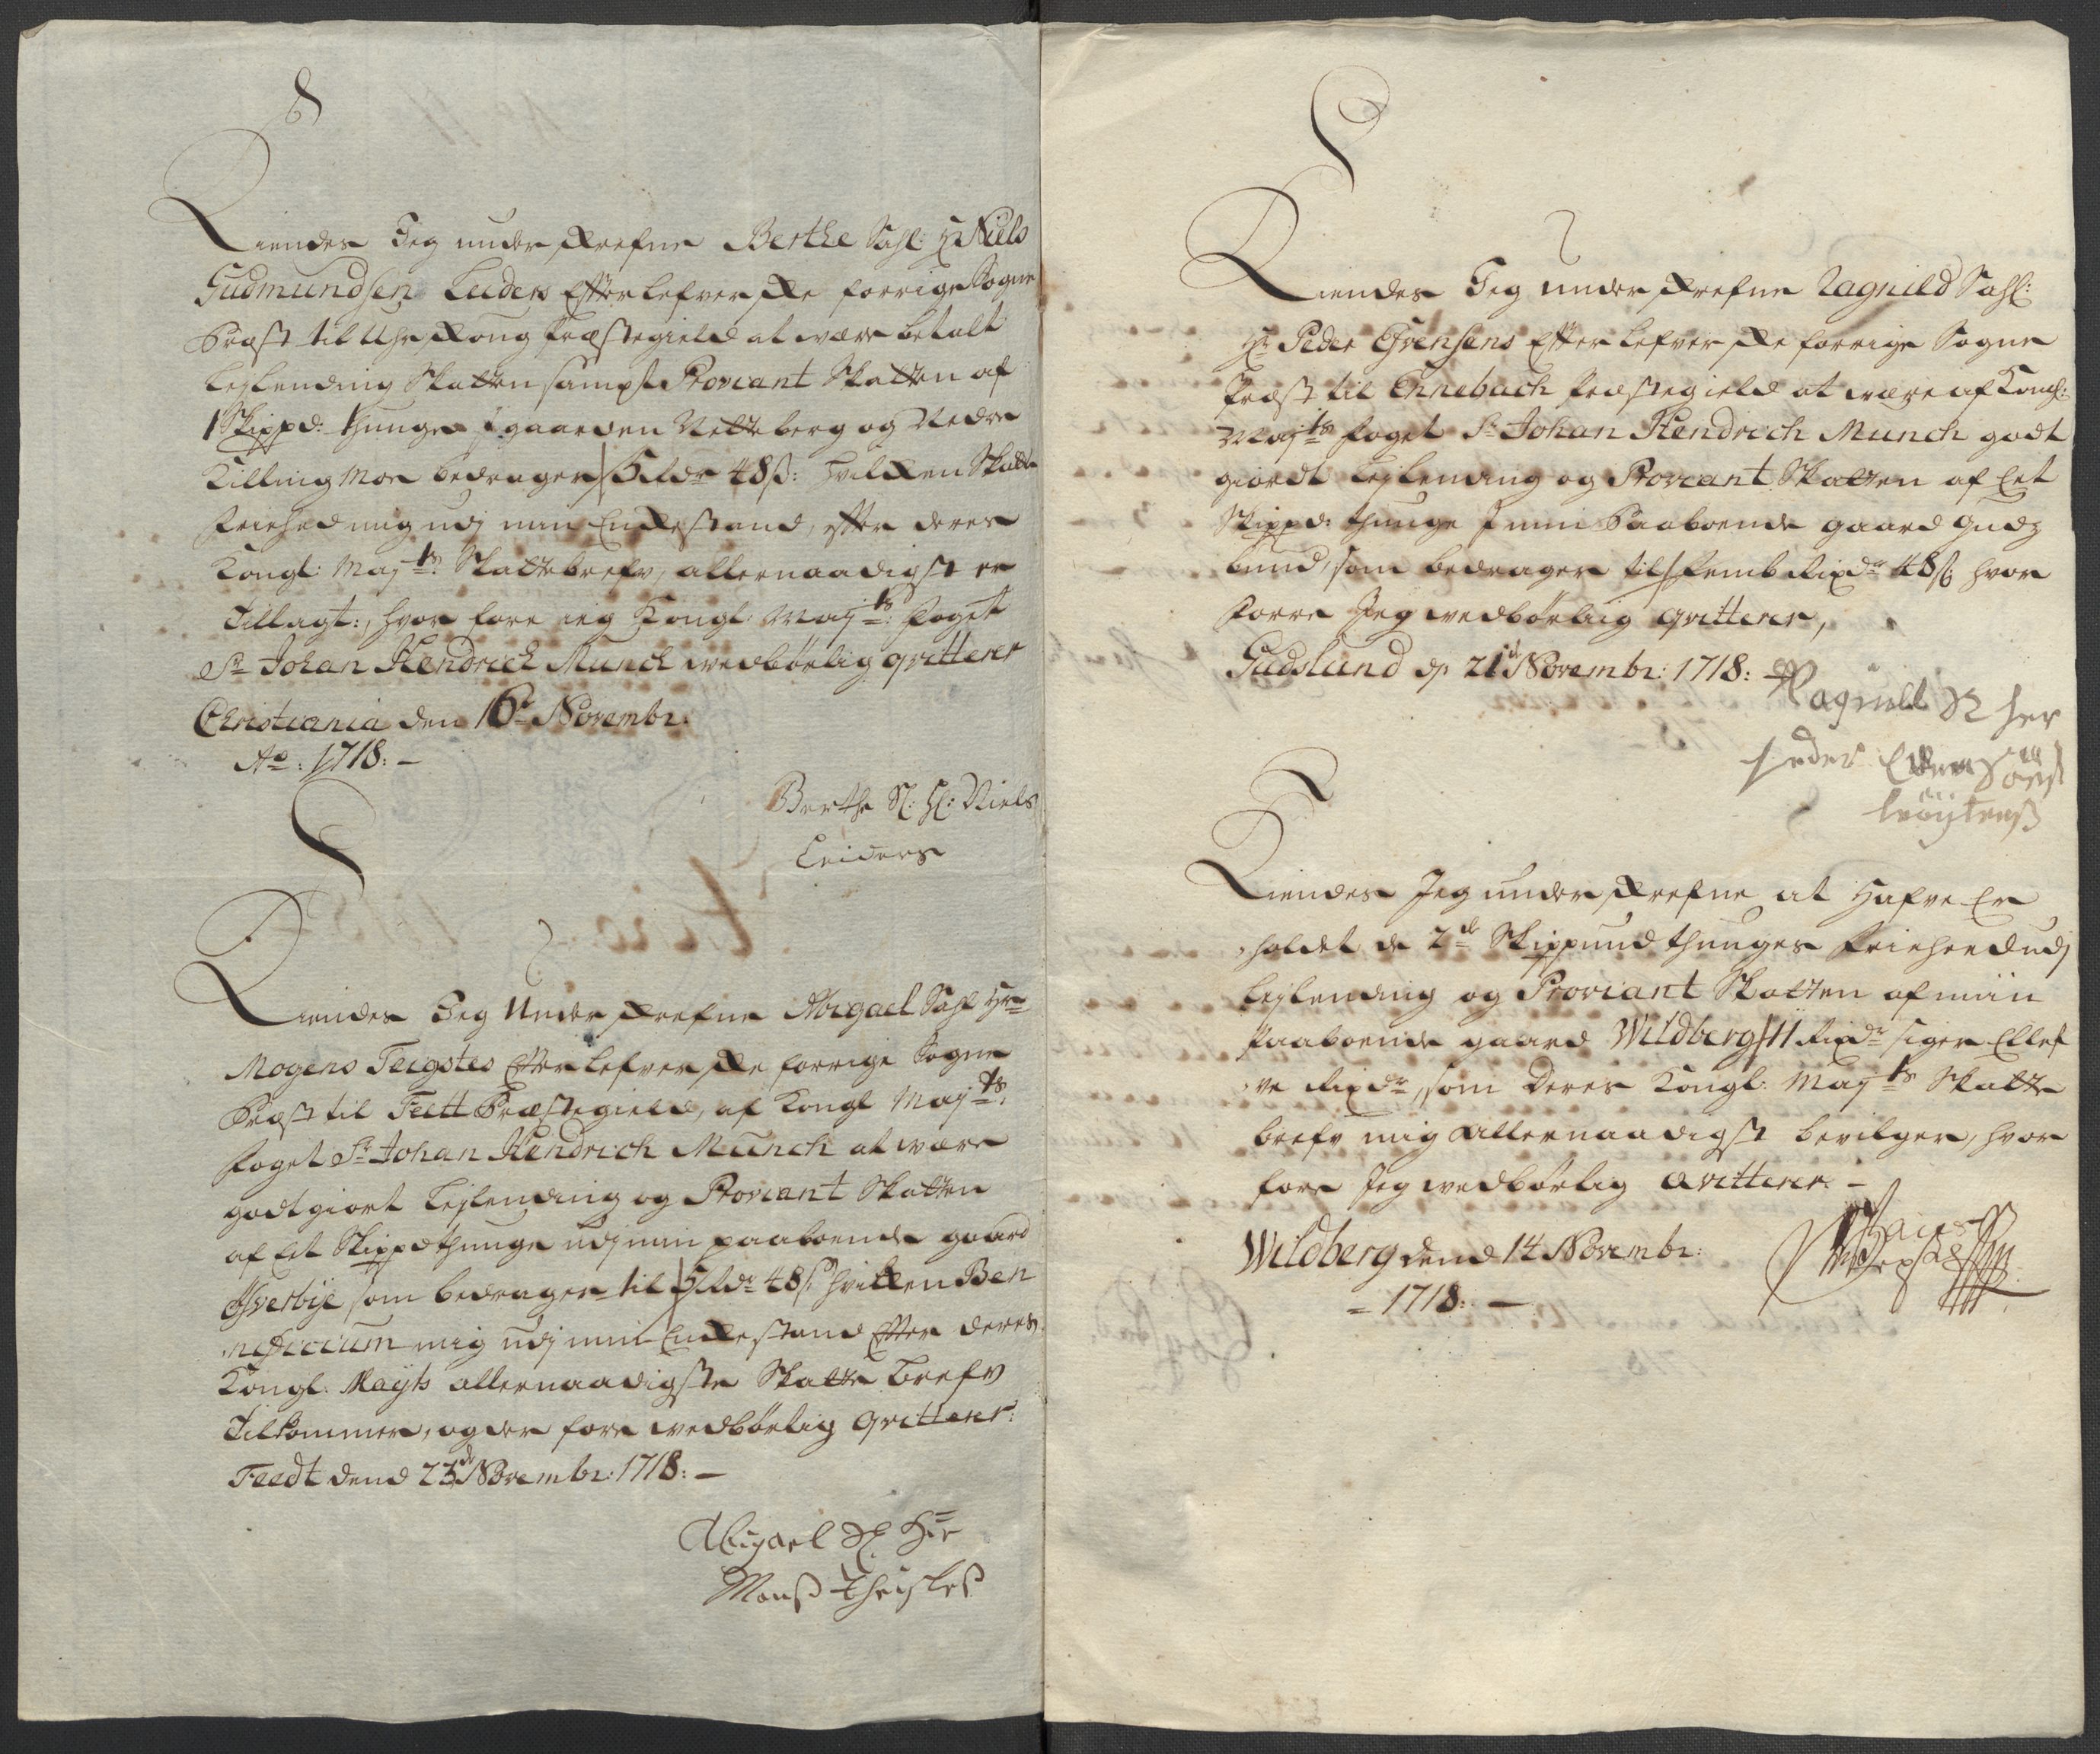 Kiendes Jeg underskrefne Berthe Sahl: Hr Niels
Gudmundsen Leiders Efterlefverske forrige Sogne
Præst til Uhrskoug Præstegield at være betalt
Leylending Skatten sampt Proviant Skatten af
1 Skippd: thunge i gaarden Netteberg og Nedre
Killingmoe bedrager 5 Rdr 48 s: hvilken Skatte
friehed mig udj min Enckestand, efter deres
Kongl: Maj:ts Skattebrefv, allernaadigst er
Tillagt:, hvor fore ieg Kongl: Maj:ts foget
Sr Johan Hendrich Munch wedbørlig qvitterer
Christiania den 16d Novembr:
Ao: 1718: —
Berthe Sl: Hl: Niels
Leiders
Kiendes Jeg Underskrefne Abigael Sahl Hr
Mogens Teigstes Efterlefverske forrige Sogne
Præst til Feett Præstegield, af Kongl Maj:ts
foget Sr Johan Hendrich Munch at være
godtgiort Leylending og Proviant Skatten
af Eet Skippd thunge udj min paaboende gaard
Øfverbye som bedrager til 5 Rdr 48 s: hvilken Ben
neficium mig udj min Enckestand Efter deres
Kongl: Mayts allernaadigste Skatte brefv
Tilkommer, og der fore wedbørlig qvitterer:
Feedt dend 23d Novembr: 1718: —
Abigael Sl Her
Monß Theisteß
Kiendes Jeg underskrefne Ragnild Sahl:
Hr Peder Efrensens Efterlefverske forrige Sogne
Præst til Ennebach Præstegield at være af Kongl:
Maj:ts foget Sr Johan Hendrich Munch godt
giordt Leylending og Proviant Skatten af Eet
Skippd: thunge i min Paaboende gaard Guds
lund, som bedrager til femb Rixdr 48 s: hvor
forre Jeg wedbørlig qvitterer,
Gudslund d 21d Novembr: 1718:
Ragnild Sl her
peder
Kiendes Jeg underskrefne at hafve Er
holdet de 2de Skippund thunges friehed udj
Leylending og Proviant Skatten af min
paaboende gaard Wildberg 11 Rixdr siger Ellef
ve Rixdr, som Deres Kongl: Maj:ts Skatte
brefv mig allernaadigst bevilger, hvor
fore Jeg wedbørlig qvitterer. —
Wildberg dend 14 Novembr:
1718: —